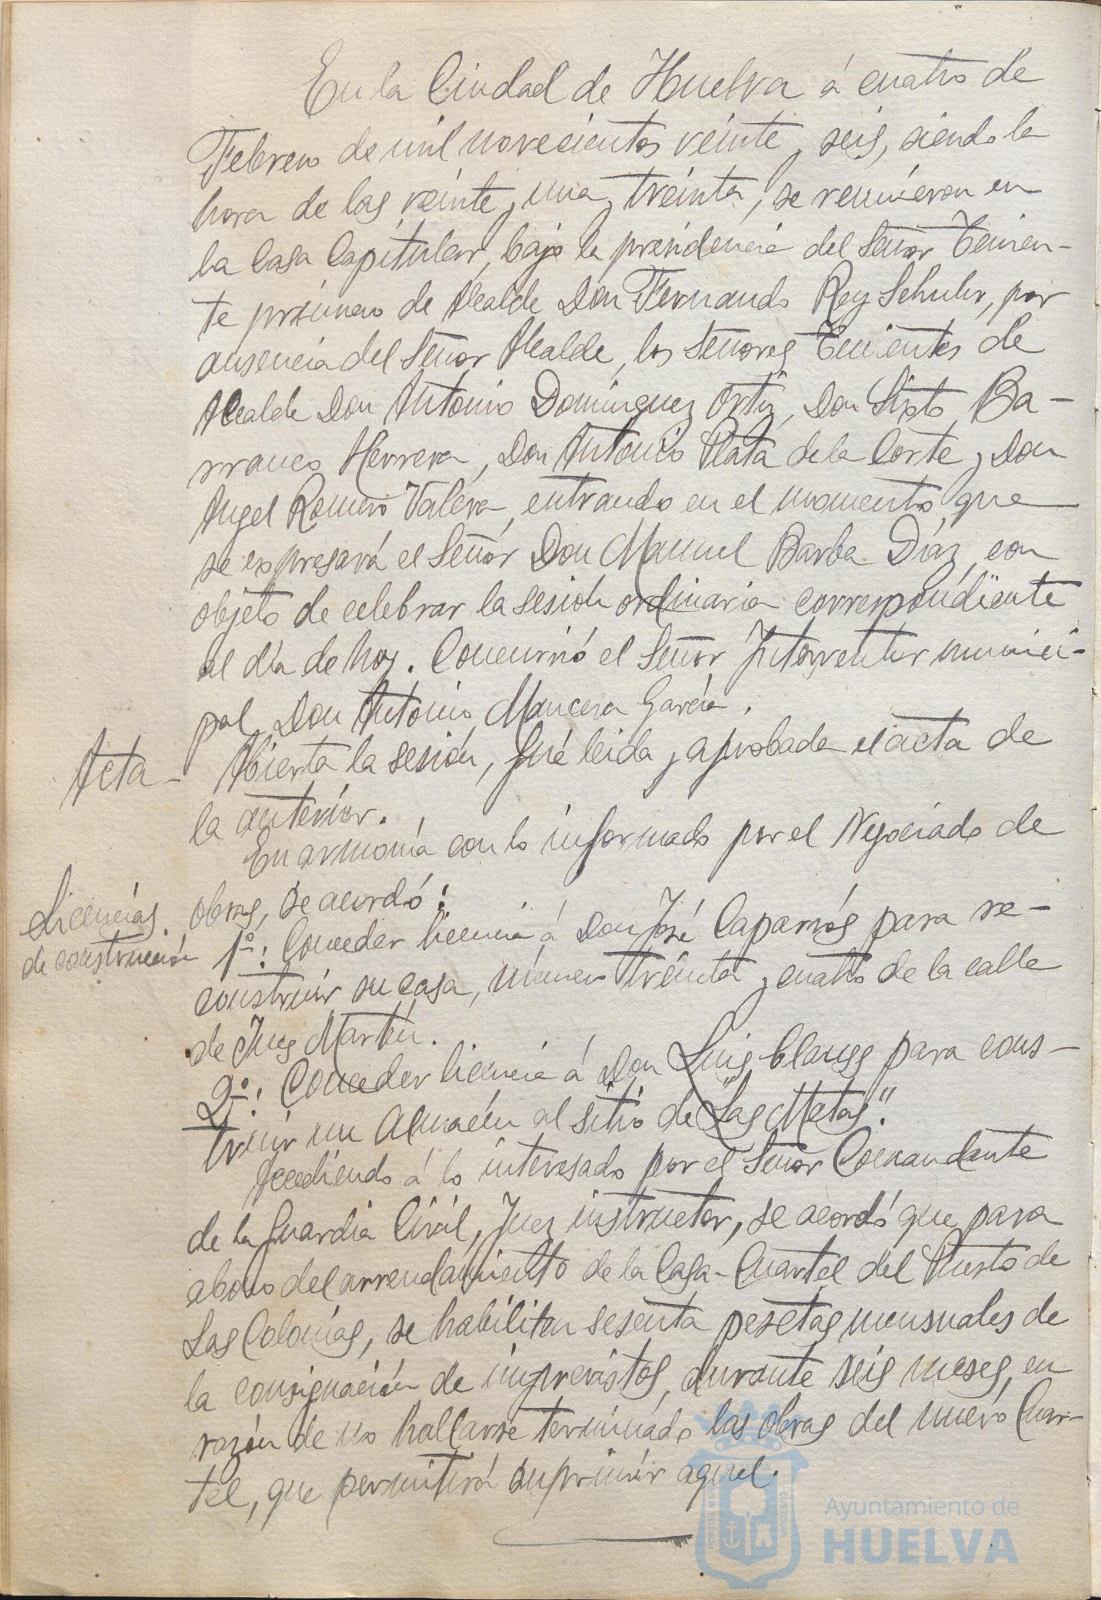 En la Ciudad de Huelva á cuatro de
Febrero de mil novecientos veinte y seis, siendo la
hora de las veinte y una y treinta, se reunieron en
la Casa Capitular, bajo la presidencia del Señor Tenien-
te primero de Alcalde Don Fernando Rey Schuler, por
ausencia del Señor Alcalde, los Señores Tenientes de
Alcalde Don Antonio Dominguez Ortiz, Don Sixto Ba-
rranco Herrera, Don Antonio Plata de la Corte y Don
Angel Romero Valera, entrando en el momento que
se expresará el Señor Don Manuel Barba Díaz, con
objeto de celebrar la sesión ordinaria correspondiente
al día de hoy. Concurrió el Señor Interventor munici-
pal, Don Antonio Mancera García.
Acta- Abierta la sesión, fué leida y aprobada el acta de
la anterior.
En armonía con lo informado por el Negociado de
Licencias obras, se acordó:
de construcción 1º: Conceder licencia á Don José Caparrós para re-
construir su casa, número treinta y cuatro de la calle
de Ynes Martín.
2º: Conceder licencia á Don Luis Clauss para cons-
truir un Almacén al sitio de "Las Metas".
Accediendo á lo interesado por el Señor Comandante
de la Guardia Civil, Juez instructor, se acordó que para
abono del arrendamiento de la Casa-Cuartel del Puesto de
Las Colonias, se habiliten sesenta pesetas mensuales de
la consignación de imprevistos, durante seis meses, en
razón de no hallarse terminado las obras del nuevo Cuar-
tel, que permitirá suprimir aquel.
Ayuntamiento de
HUELVA